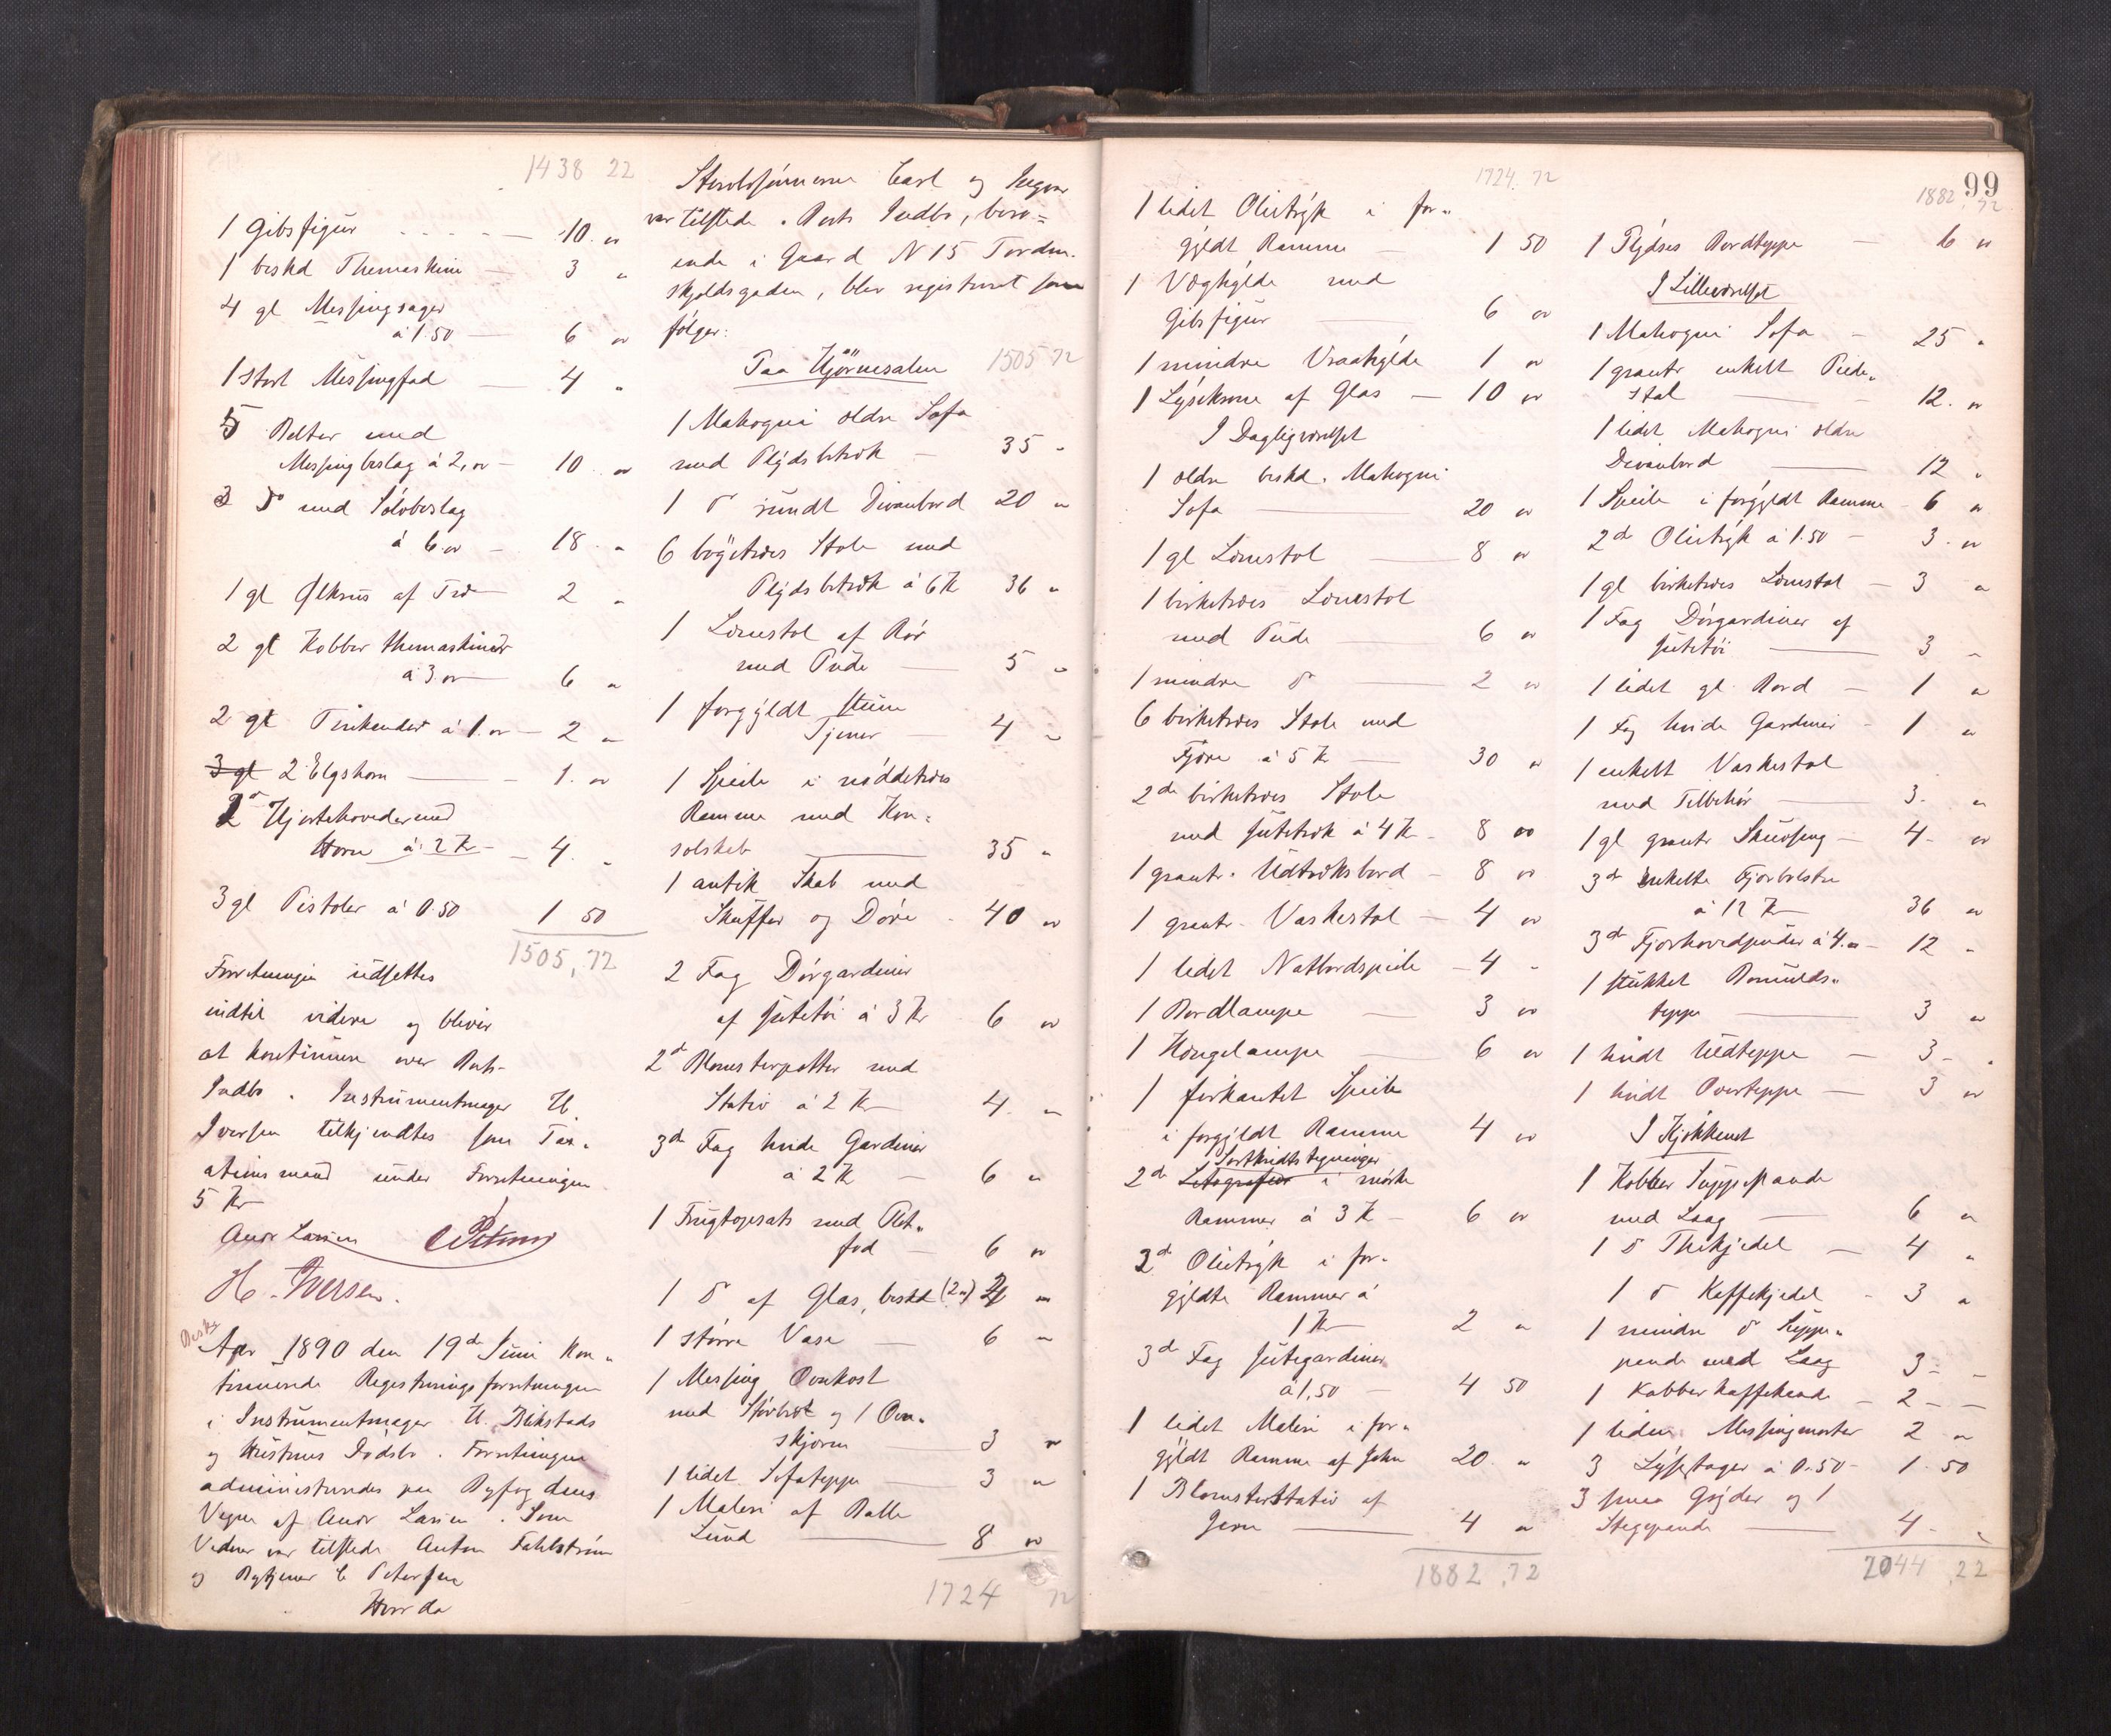 1438 22
1 Gibsfigur - - - - - 10 "
1 beskd Themaskine - 3 "
4 gl Messingsager
à 1.50 - 6 "
1 stort Messingfad - 4 "
5 Belter med
Messingbeslag à 2," - 10 "
3 do med Sølvbeslag
à 6 " - 18 "
1 gl Ølkrus af Træ 2 "
2 gl Kobber themaskiner
à 3 " - 6 "
2 gl Tinkander à 1 " - 2 "
3 gl 2 Elgshorn - 1. "
2 Hjortehoveder med
Horn à 2 Kr - 4. "
3 gl Pistoler à 0.50 1 50
1505,72
Forretningen udsettes
indtil videre og bliver
at kontinuere over Bets
Indbo. Instrumentmager H.
Iversen tilkjendtes som Tax-
ationsmand under Forretningen
5 Kr
Andr Larsen C Petersen
H. Iversen.
Besk.
Aar 1890 den 19de Juni kon-
tinuerede Registreringsforretningen
i Instrumentmager H. Bikstads
og Hustrues Dødsbo. Forretningen
administreredes paa Byfogdens
Vegne af Andr Larsen. Som
Vidner var tilstede Anton Fahlstrøm
og Bytjener C Petersen
Hvor da
Stervbosønnerne Carl og Ingvar
var tilstede. Bets Indbo, bero=
ende i Gaard N 15 Torden-
skjoldsgaden, blev registreret som
følger:
Paa Hjørnesalen 1505 72
1 Mahogni ældre Sofa
med Plydsbetræk - 35 "
1 do rundt Divanbord 20 "
6 bøgetræes Stole med
Plydsbetræk à 6 Kr 36 "
1 Lænestol af Rør
med Pude - 5 "
1 forgyldt stum
Tjener 4 "
1 Speile i nøddetræes
Ramme med Kon=
solskab - 35 "
1 antik Skab med
Skuffer og Døre - 40 "
2 Fag Dørgardiner
af Jutetøi à 3 Kr 6 "
2de Blomsterpotter med
Stativ à 2 Kr 4 "
3de Fag hvide Gardiner
à 2 Kr - 6 "
1 Frugtopsats med Plet-
fod - 6 "
1 do af Glas, beskd (2 ") 2 "
1 større Vase - 6 "
1 Messing Ovnkost
med Støvbræt og 1 Ovn-
skjærm - 3 "
1 lidet Sofateppe - 3 "
1 Maleri af Balle
Lund - 8 "
1724 72
1724.72
1 lidet Olietryk i for-
gyldt Ramme - 1 50
1 Væghylde med
Gibsfigur - 6 "
1 mindre Vraahylde 1 "
1 Lysekrone af Glas - 10 "
I Dagligværelset
1 ældre beskd. Mahogni
Sofa - 20 "
1 gl Lænestol - 8 "
1 birketræes Lænestol
med Pude - 6 "
1 mindre do - 2 "
6 birketræes Stole med
Fjære à 5 Kr - 30 "
2de birketræes Stole
med Jutetræk à 4 Kr - 8 "
1 grantr. Udtræksbord - 8 "
1 grantr. Vaskestol - 4 "
1 lidet Natbordspeile - 4 "
1 Bordlampe - 3 "
1 Hængelampe - 6 "
1 firkantet Speile
i forgyldt Ramme 4 "
Sortkridtstegninger
2de Litografier i mørke
Rammer à 3 K - 6 "
2de Olietryk i for-
gyldte Rammer à
1 Kr - 2 "
3de Fag Jutegardiner
à 1,50 - 4 50
1 lidet Maleri i for-
gyldt Ramme af John 20 "
1 Blomsterstativ af
Jern - 4 "
1882.72
99
1882,72
1 Plydses Bordteppe - 6 "
I Lilleværelset
1 Mahogni Sofa - 25 "
1 grantr enkelt Piede-
stal - 12. "
1 lidet Mahogni ældre
Divanbord - 12 "
1 Speile i forgyldt Ramme - 6 "
2de Olietryk à 1.50 - 3. "
1 gl birketræes Lænestol - 3 "
1 Fag Dørgardiner af
Jutetøi - 3 "
1 lidet gl. Bord - 1 "
1 Fag hvide Gardiner - 1 "
1 enkelt Vaskestol
med Tilbehør - 3. "
1 gl grantr Skuvseng - 4 - "
3de enkelte Fjørbolstre
à 12 Kr 36 "
3de Fjørhovedpuder à 4. " - 12 "
1 stukket Bomulds-
teppe - 3 "
1 hvidt Uldteppe - 3 - "
1 hvidt Overteppe - 3 "
I Kjøkkenet
1 Kobber Suppepande
med Laag - 6 "
1 do Thekjedel - 4 "
1 do Kaffekjedel - 3 "
1 mindre do Suppe-
pande med Laag 3 - -
1 Kobberkaffekande - 2 - -
1 liden Messingmorter 2 "
3 Lysestager à 0.50 - 1.50
3 smaa Gryder og 1
Stegepande - 4 - "
2044.22